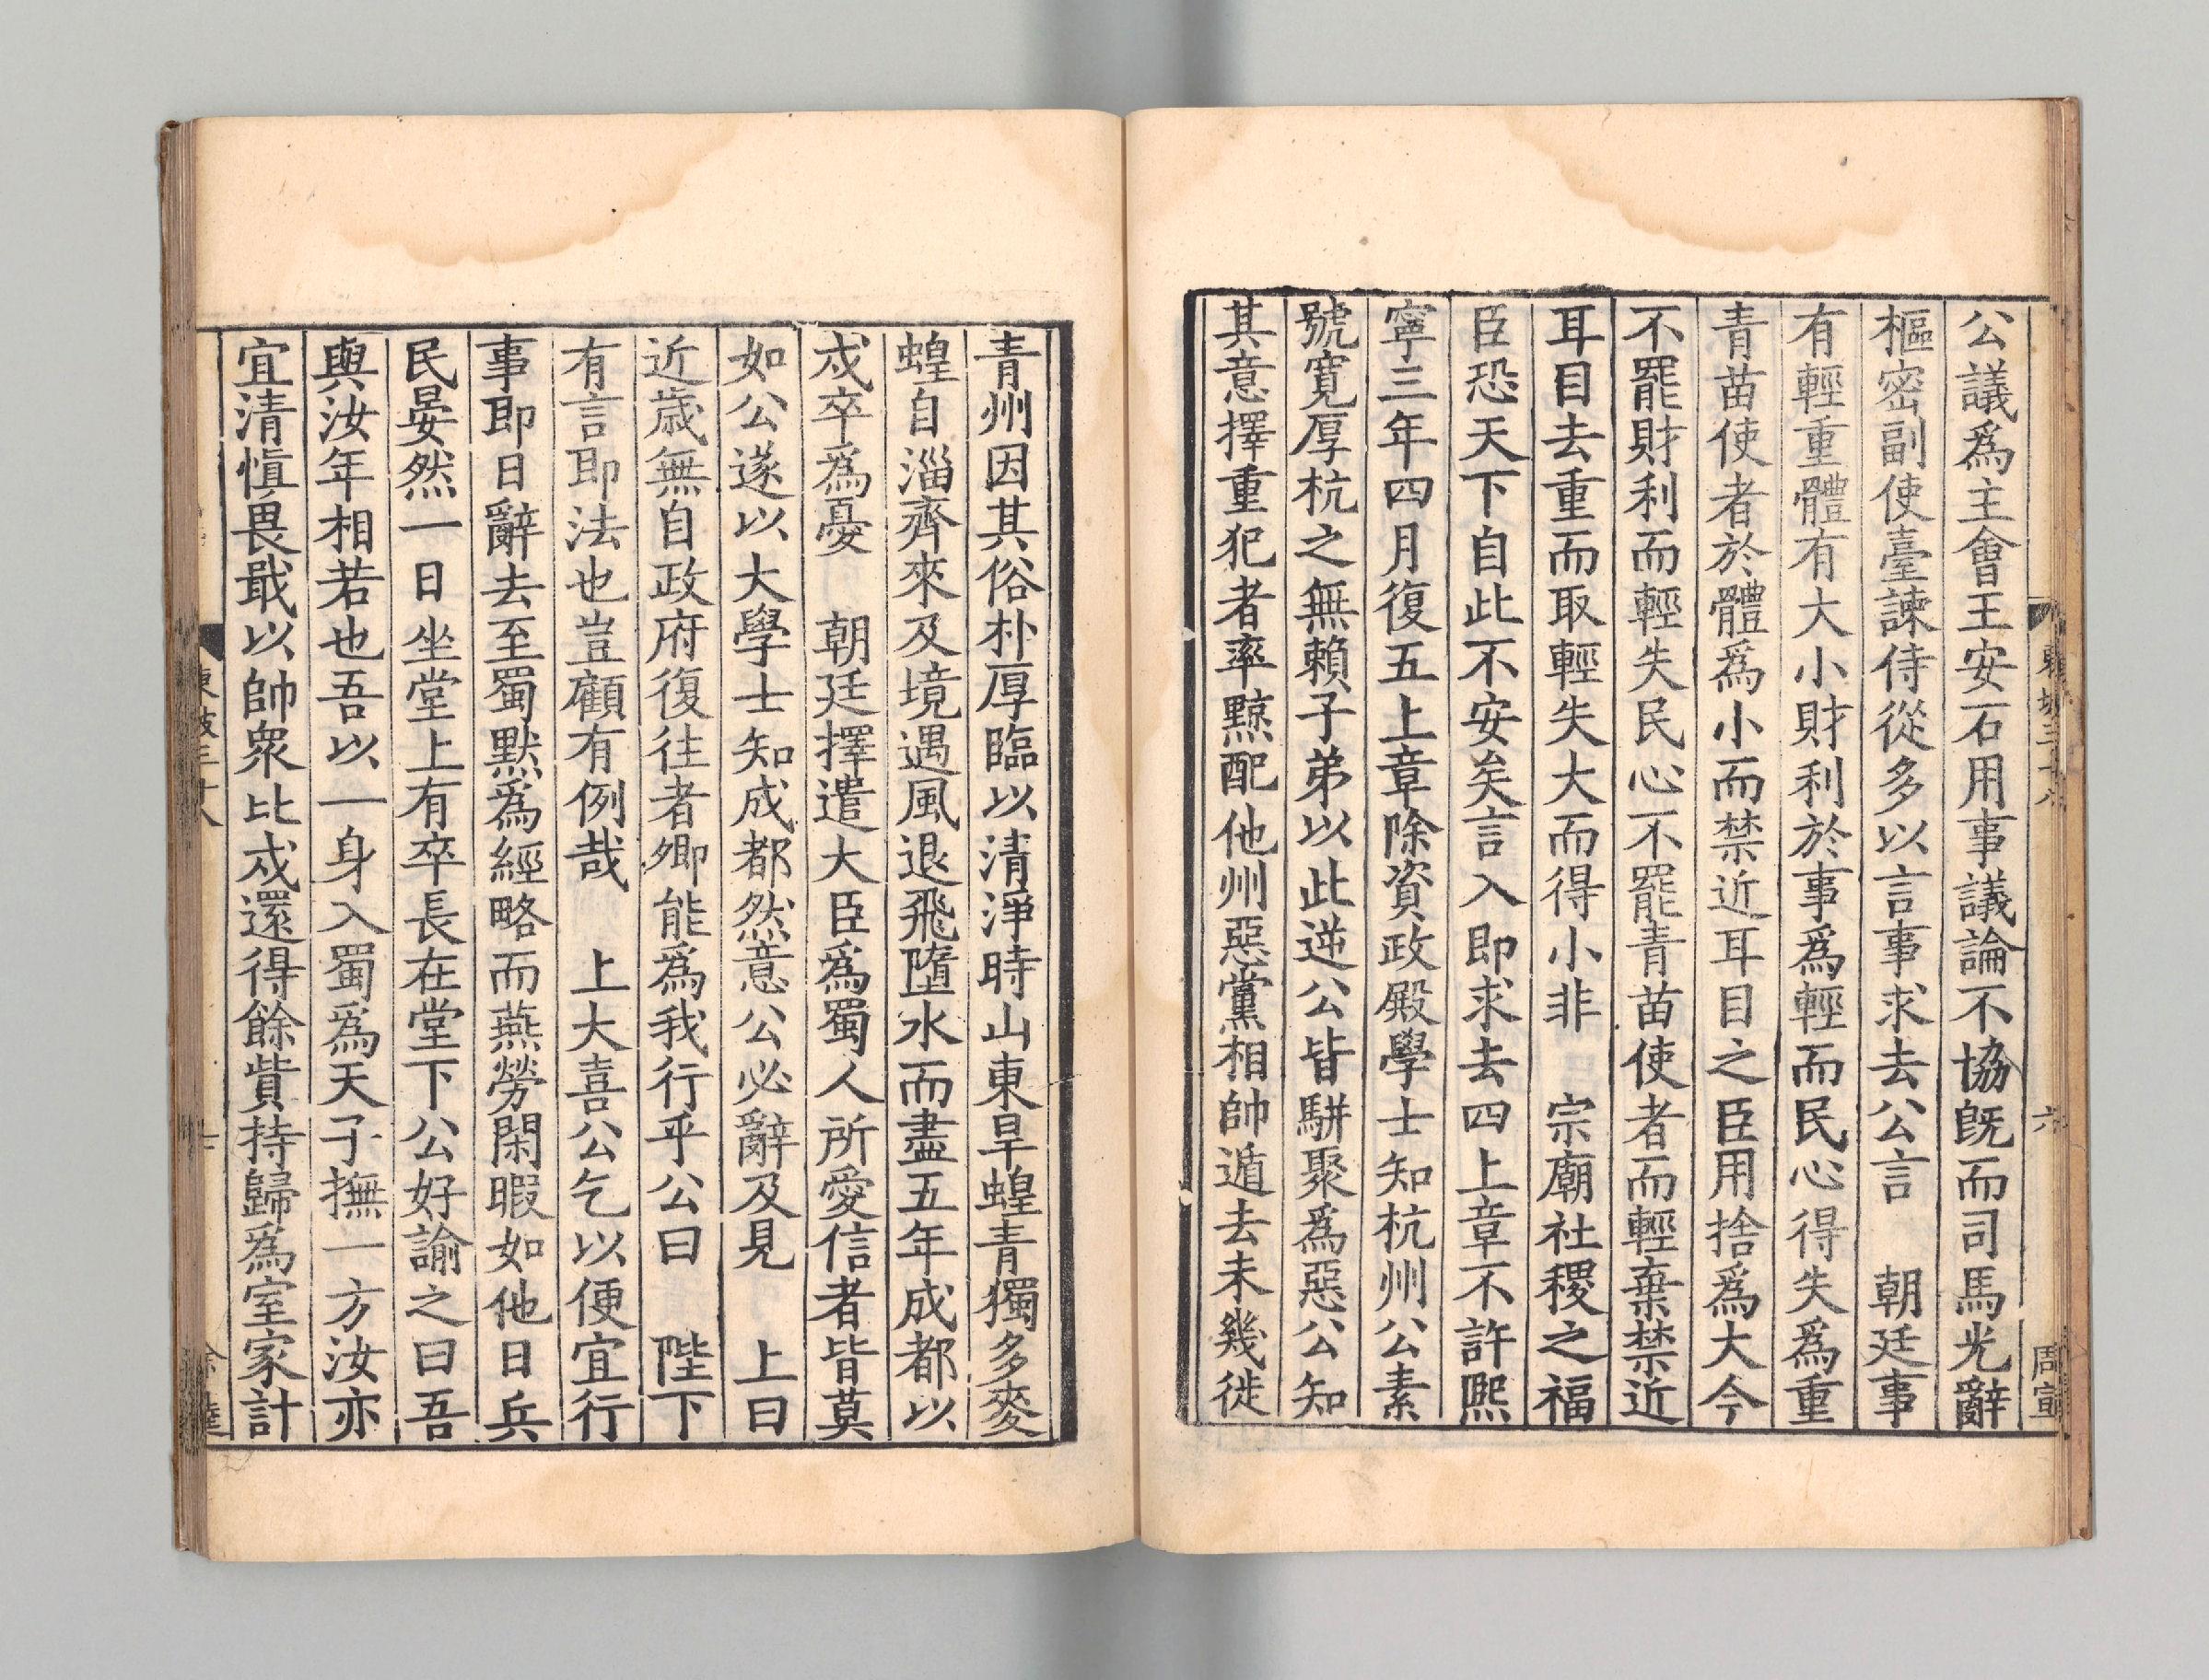 公議爲主會王安石用事議論不協旣而司馬光辭
樞密副使臺諫侍從多以言事求去公言　朝廷事
有輕重體有大小財利於事爲輕而民心得失爲重
青苗使者於體爲小而禁近耳目之臣用捨爲大今
不罷財利而輕失民心不罷青苗使者而輕棄禁近
耳目去重而取輕失大而得小非　宗廟社稷之福
臣恐天下自此不安矣言入即求去四上章不許熈
寧三年四月復五上章除資政殿學士知杭州公素
號寬厚杭之無賴子弟以此逆公皆駢聚爲惡公知
其意擇重犯者率黥配他州惡黨相帥遁去未幾徙
青州因其俗朴厚臨以清淨時山東旱蝗青獨多麥
蝗自淄齊來及境遇風退飛墮水而盡五年成都以
戍卒爲憂　朝廷擇遣大臣爲蜀人所愛信者皆莫
如公遂以大學士知成都然意公必辭及見　上曰
近歲無自政府復往者卿能爲我行乎公曰　陛下
有言即法也豈顧有例哉　上大喜公乞以便宜行
事即日辭去至蜀默爲經略而燕勞閑暇如他日兵
民晏然一日坐堂上有卒長在堂下公好諭之曰吾
與汝年相若也吾以一身入蜀爲天子撫一方汝亦
宜清愼畏戢以帥衆比戍還得餘貲持歸爲室家計
東坡三十八
六
周宣
東坡三十八
七